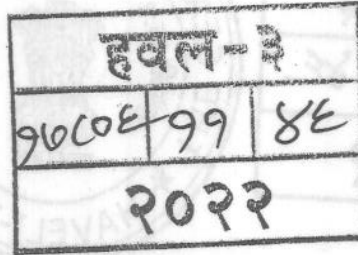 हवल-३
१७८०६ ११ ४६
२०२२